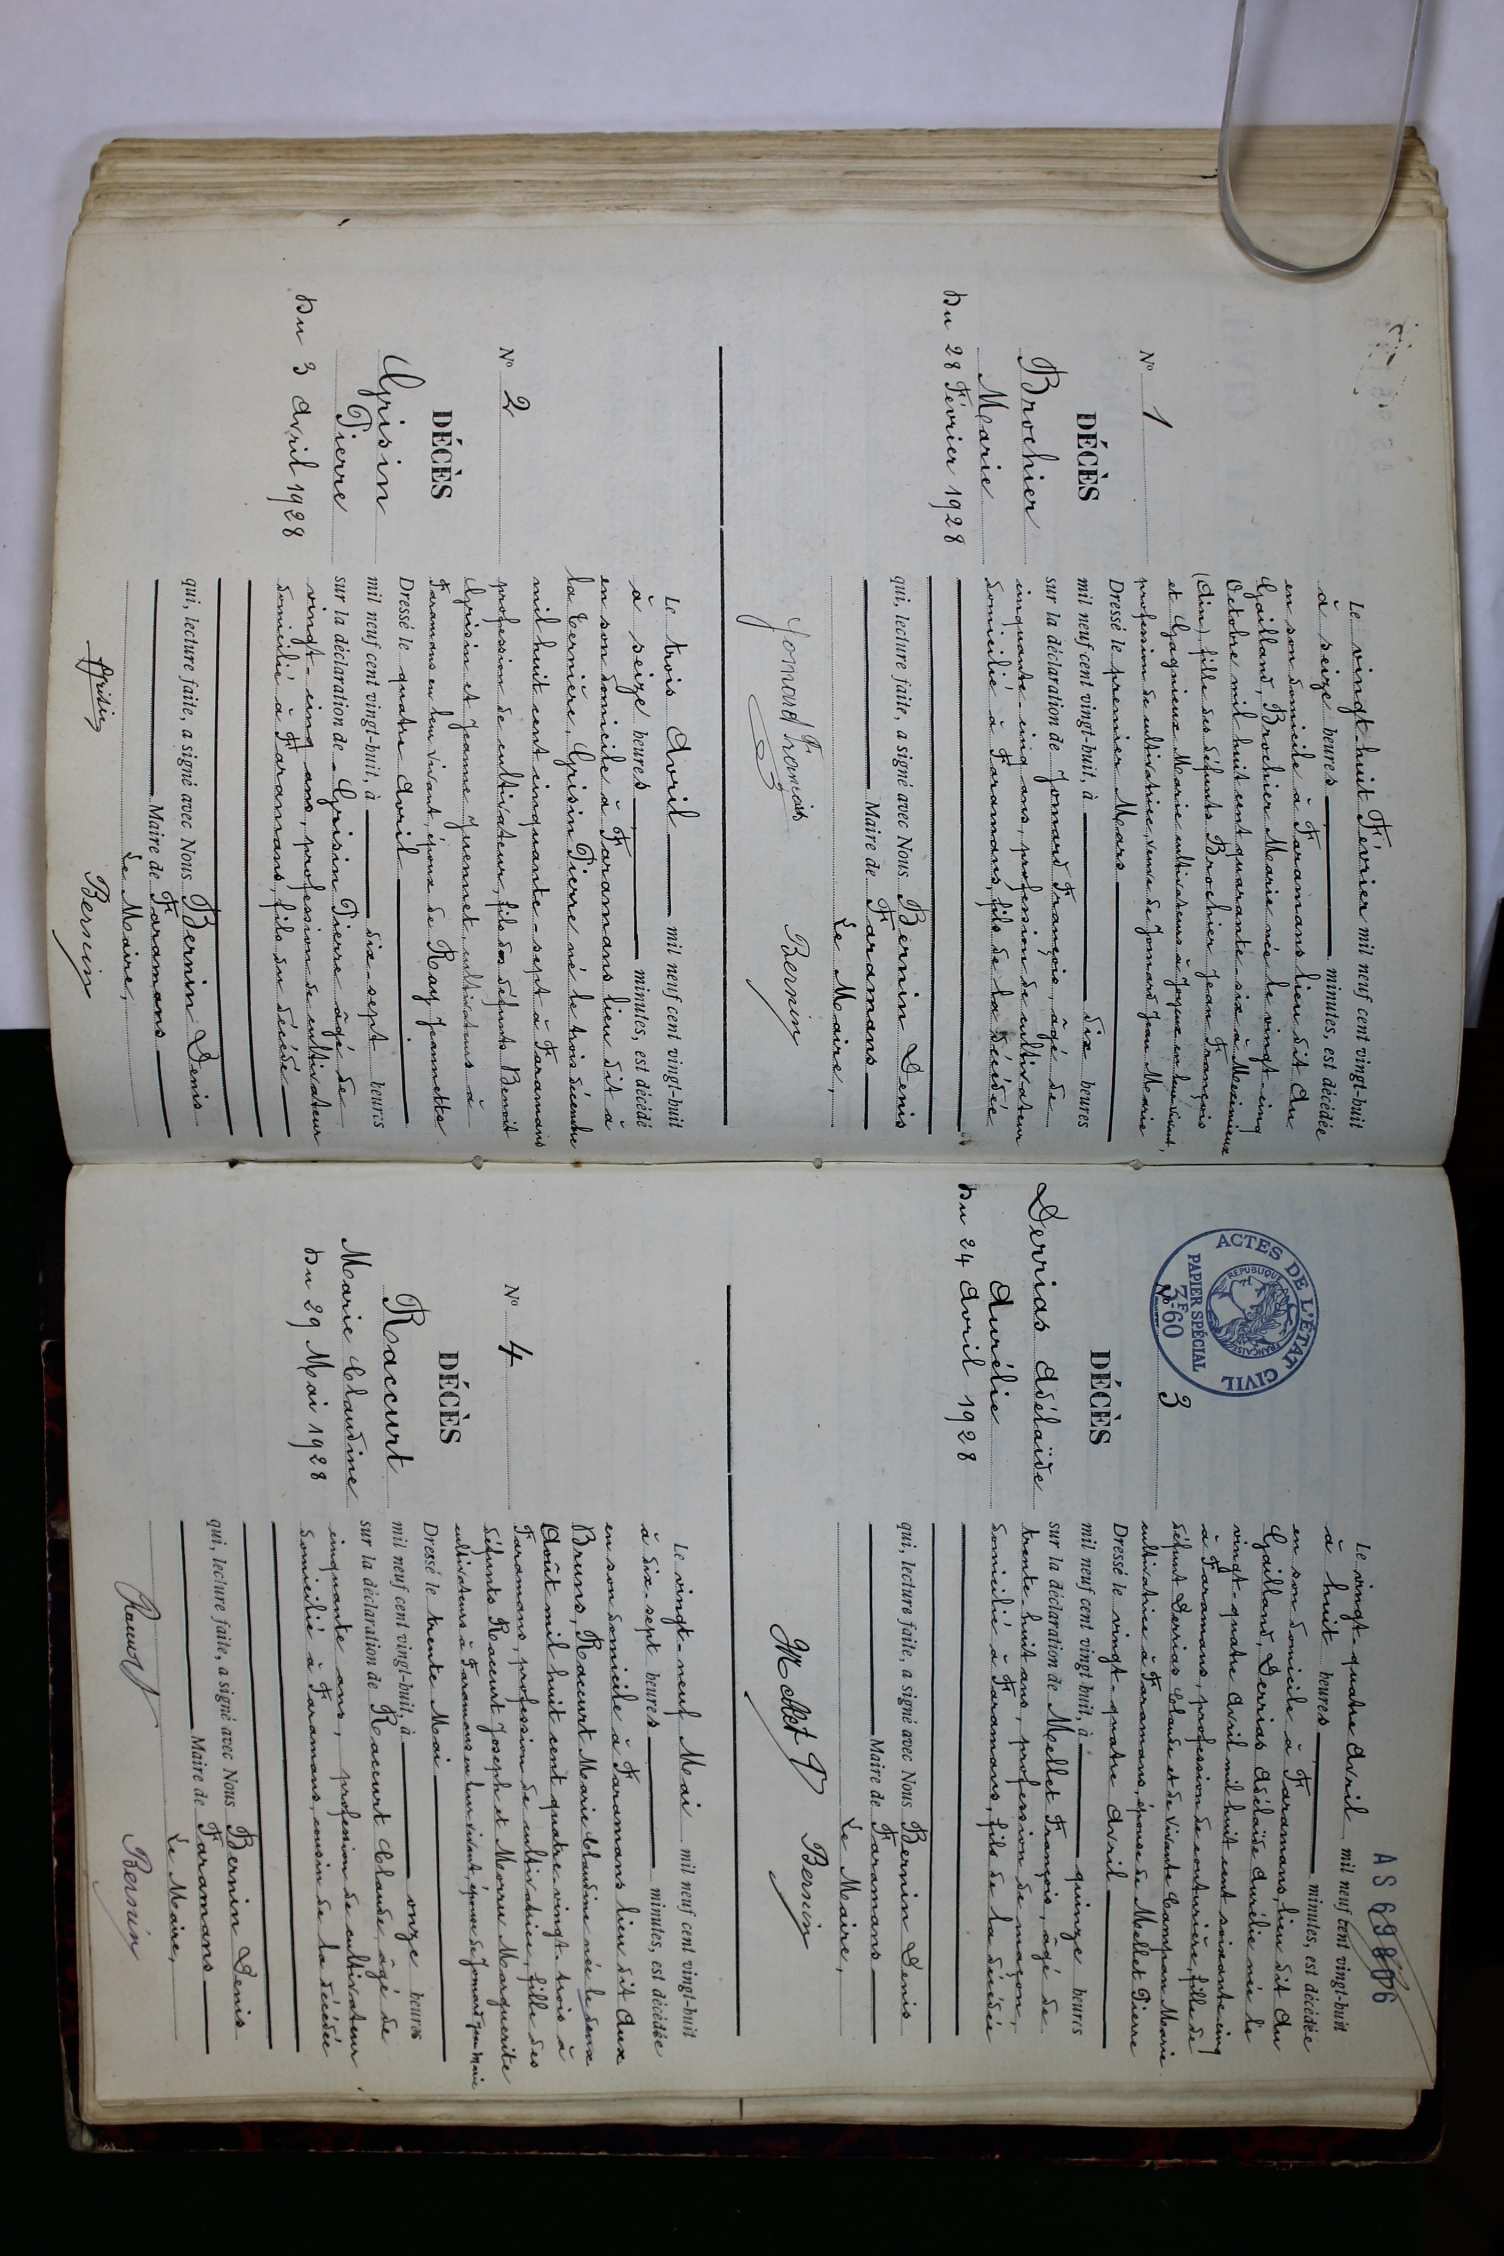 N° 1
DÉCÈS
Brochier
Marie
Du 28 Février 1928
Le vingt-huit Février mil neuf cent vingt-huit
à seize heures minutes, est décédée
en son domicile à Faramans lieu dit Au
Gailland, Brochier Marie née le vingt-cinq
Octobre mil huit cent quarante-six à Meximieux
(Ain), fille des défunts Brochier Jean François
et Gagnieux Marie cultivateurs à Joyeux en leur vivant,
profession de cultivatrice, veuve de Jomard Jean Marie
Dressé le premier Mars
mil neuf cent vingt-huit, à dix heures
sur la déclaration de Jomard François, âgé de
cinquante-cinq ans, profession de cultivateur
domicilié à Faramans, fils de la décédée
qui, lecture faite, a signé avec Nous Bernin Denis
Maire de Faramans
Le Maire,
Jomard François
Bernin
N° 2
DÉCÈS
Grisin
Pierre
Du 3 Avril 1928
Le trois Avril mil neuf cent vingt-huit
à seize heures minutes, est décédé
en son domicile à Faramans lieu dit à
la Ternière, Grisin Pierre né le trois décembre
mil huit cent cinquante-sept à Faramans
profession de cultivateur, fils des défunts Benoit
Grisin et Jeanne Juennet cultivateurs à
Faramans en leur vivant, époux de Ray Jeannette
Dressé le quatre Avril
mil neuf cent vingt-huit, à dix-sept heures
sur la déclaration de Grisin Pierre âgé de
vingt-cinq ans, profession de cultivateur
domicilié à Faramans, fils du décédé
qui, lecture faite, a signé avec Nous Bernin Denis
Maire de Faramans
Le Maire,
Grisin
Bernin
AS 69806
ACTES DE L'ÉTAT CIVIL
RÉPUBLIQUE FRANÇAISE
PAPIER SPÉCIAL
3F60
N° 3
DÉCÈS
Derrias Adélaïde
Aurélie
Du 24 Avril 1928
Le vingt-quatre Avril mil neuf cent vingt-huit
à huit heures minutes, est décédée
en son domicile à Faramans, lieu dit Au
Gailland, Derrias Adélaïde Aurélie née le
vingt-quatre Avril mil huit cent soixante cinq
à Faramans, profession de couturière, fille de
défunt Derrias Claude et de vivante Campan Marie
cultivatrice à Faramans, épouse de Mellet Pierre
Dressé le vingt-quatre Avril
mil neuf cent vingt-huit, à quinze heures
sur la déclaration de Mellet François, âgé de
trente-huit ans, profession de maçon,
domicilié à Faramans, fils de la décédée
qui, lecture faite, a signé avec Nous Bernin Denis
Maire de Faramans
Le Maire,
Mellet
Bernin
N° 4
DÉCÈS
Raccurt
Marie Claudine
Du 29 Mai 1928
Le vingt-neuf Mai mil neuf cent vingt-huit
à dix-sept heures minutes, est décédée
en son domicile à Faramans lieu dit Aux
Bruns, Raccurt Marie Claudine née le deux
Août mil huit cent quatre-vingt-trois à
Faramans, profession de cultivatrice, fille des
défunts Raccurt Joseph et Morru Marguerite
cultivateurs à Faramans en leur vivant, épouse de Jomard Jean Marie
Dressé le trente Mai
mil neuf cent vingt-huit, à onze heures
sur la déclaration de Raccurt Claude, âgé de
cinquante ans, profession de cultivateur
domicilié à Faramans, cousin de la décédée
qui, lecture faite, a signé avec Nous Bernin Denis
Maire de Faramans
Le Maire,
Raccurt
Bernin